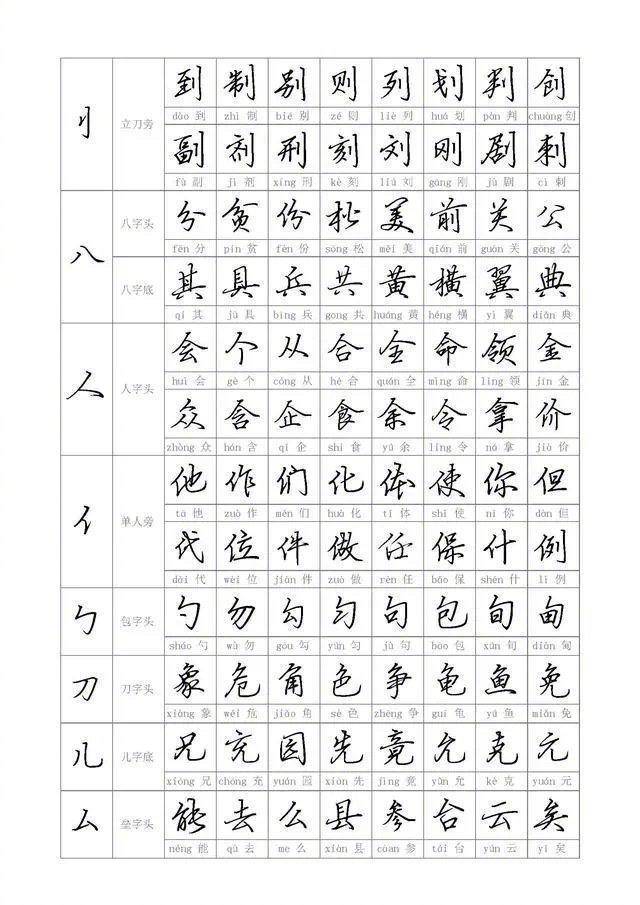 刂 立刀旁 到 制 别 则 列 划 判 创
dào 到 zhì 制 bié 别 zé 则 liè 列 huá 划 pàn 判 chuàng 创
副 剂 刑 刻 刘 刚 剧 刺
fù 副 jì 剂 xíng 刑 kè 刻 liú 刘 gāng 刚 jù 剧 cì 刺
八 八字头 分 贫 份 松 美 前 关 公
fēn 分 pín 贫 fèn 份 sōng 松 měi 美 qián 前 guān 关 gōng 公
八字底 其 具 兵 共 黄 横 翼 典
qí 其 jù 具 bīng 兵 gòng 共 huáng 黄 héng 横 yì 翼 diǎn 典
人 人字头 会 个 从 合 全 命 领 金
huì 会 gè 个 cóng 从 hé 合 quán 全 mìng 命 lǐng 领 jīn 金
众 含 企 食 余 令 拿 价
zhòng 众 hán 含 qǐ 企 shí 食 yú 余 lìng 令 ná 拿 jià 价
亻 单人旁 他 作 们 化 体 使 你 但
tā 他 zuò 作 mén 们 huà 化 tǐ 体 shǐ 使 nǐ 你 dàn 但
代 位 件 做 任 保 什 例
dài 代 wèi 位 jiàn 件 zuò 做 rèn 任 bǎo 保 shén 什 lì 例
勹 包字头 勺 勿 勾 匀 句 包 旬 甸
sháo 勺 wù 勿 gōu 勾 yún 匀 jù 句 bāo 包 xún 旬 diàn 甸
刀 刀字头 象 危 角 色 争 龟 鱼 免
xiàng 象 wēi 危 jiǎo 角 sè 色 zhēng 争 guī 龟 yú 鱼 miǎn 免
儿 儿字底 兄 充 园 先 竟 允 克 元
xiōng 兄 chōng 充 yuán 园 xiān 先 jìng 竟 yǔn 允 kè 克 yuán 元
厶 垒字头 能 去 么 县 参 台 云 矣
néng 能 qù 去 me 么 xiàn 县 cān 参 tái 台 yún 云 yǐ 矣